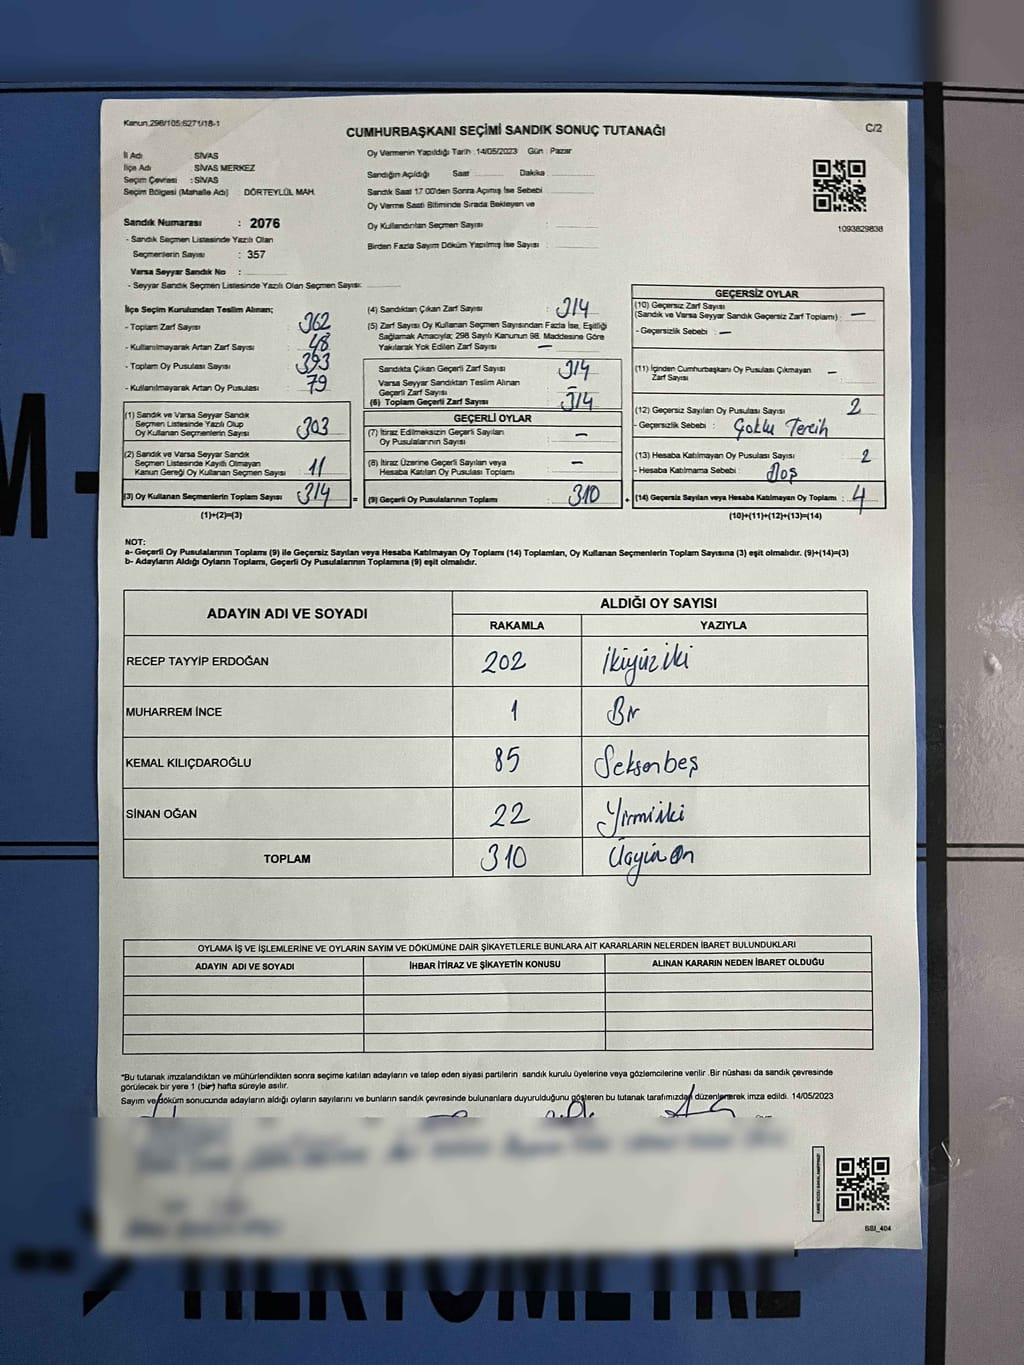 Kanun.298/105:6271/18-1
CUMHURBAŞKANI SEÇİMİ SANDIK SONUÇ TUTANAĞI
C/2
İl Adı : SİVAS
İlçe Adı : SİVAS MERKEZ
Seçim Çevresi : SİVAS
Seçim Bölgesi (Mahalle Adı) DÖRTEYLÜL MAH.
Sandık Numarası : 2076
- Sandık Seçmen Listesinde Yazılı Olan
Seçmenlerin Sayısı : 357
Varsa Seyyar Sandık No :
- Seyyar Sandık Seçmen Listesinde Yazılı Olan Seçmen Sayısı:
Oy Vermenin Yapıldığı Tarih :14/05/2023 Gün : Pazar
Sandığın Açıldığı Saat Dakika
Sandık Saat 17.00'den Sonra Açılmış İse Sebebi
Oy Verme Saati Bitiminde Sırada Bekleyen ve
Oy Kullandırılan Seçmen Sayısı :
Birden Fazla Sayım Döküm Yapılmış İse Sayısı :
1093829838
İlçe Seçim Kurulundan Teslim Alınan;
- Toplam Zarf Sayısı : 362
- Kullanılmayarak Artan Zarf Sayısı : 48
- Toplam Oy Pusulası Sayısı : 393
- Kullanılmayarak Artan Oy Pusulası : 79
(1) Sandık ve Varsa Seyyar Sandık
Seçmen Listesinde Yazılı Olup
Oy Kullanan Seçmenlerin Sayısı : 303
(2) Sandık ve Varsa Seyyar Sandık
Seçmen Listesinde Kayıtlı Olmayan
Kanun Gereği Oy Kullanan Seçmen Sayısı : 11
(3) Oy Kullanan Seçmenlerin Toplam Sayısı : 314 =
(1)+(2)=(3)
(4) Sandıktan Çıkan Zarf Sayısı : 314
(5) Zarf Sayısı Oy Kullanan Seçmen Sayısından Fazla İse, Eşitliği
Sağlamak Amacıyla; 298 Sayılı Kanunun 98. Maddesine Göre
Yakılarak Yok Edilen Zarf Sayısı : —
Sandıkta Çıkan Geçerli Zarf Sayısı : 314
Varsa Seyyar Sandıktan Teslim Alınan
Geçerli Zarf Sayısı : –
(6) Toplam Geçerli Zarf Sayısı : 314
GEÇERLİ OYLAR
(7) İtiraz Edilmeksizin Geçerli Sayılan
Oy Pusulalarının Sayısı : –
(8) İtiraz Üzerine Geçerli Sayılan veya
Hesaba Katılan Oy Pusulası Toplamı : –
(9) Geçerli Oy Pusulalarının Toplamı : 310 +
GEÇERSİZ OYLAR
(10) Geçersiz Zarf Sayısı
(Sandık ve Varsa Seyyar Sandık Geçersiz Zarf Toplamı) : —
- Geçersizlik Sebebi : —
(11) İçinden Cumhurbaşkanı Oy Pusulası Çıkmayan
Zarf Sayısı : –
(12) Geçersiz Sayılan Oy Pusulası Sayısı : 2
- Geçersizlik Sebebi : Çoklu Tercih
(13) Hesaba Katılmayan Oy Pusulası Sayısı : 2
- Hesaba Katılmama Sebebi : Boş
(14) Geçersiz Sayılan veya Hesaba Katılmayan Oy Toplamı : 4
(10)+(11)+(12)+(13)=(14)
NOT:
a- Geçerli Oy Pusulalarının Toplamı (9) ile Geçersiz Sayılan veya Hesaba Katılmayan Oy Toplamı (14) Toplamları, Oy Kullanan Seçmenlerin Toplam Sayısına (3) eşit olmalıdır. (9)+(14)=(3)
b- Adayların Aldığı Oyların Toplamı, Geçerli Oy Pusulalarının Toplamına (9) eşit olmalıdır.
ADAYIN ADI VE SOYADI ALDIĞI OY SAYISI
RAKAMLA YAZIYLA
RECEP TAYYİP ERDOĞAN 202 ikiyüziki
MUHARREM İNCE 1 Bir
KEMAL KILIÇDAROĞLU 85 Seksenbeş
SİNAN OĞAN 22 Yirmiiki
TOPLAM 310 Üçyüz on
OYLAMA İŞ VE İŞLEMLERİNE VE OYLARIN SAYIM VE DÖKÜMÜNE DAİR ŞİKAYETLERLE BUNLARA AİT KARARLARIN NELERDEN İBARET BULUNDUKLARI
ADAYIN ADI VE SOYADI İHBAR İTİRAZ VE ŞİKAYETİN KONUSU ALINAN KARARIN NEDEN İBARET OLDUĞU
*Bu tutanak imzalandıktan ve mühürlendikten sonra seçime katılan adayların ve talep eden siyasi partilerin sandık kurulu üyelerine veya gözlemcilerine verilir .Bir nüshası da sandık çevresinde
görülecek bir yere 1 (bir) hafta süreyle asılır.
Sayım ve döküm sonucunda adayların aldığı oyların sayılarını ve bunların sandık çevresinde bulunanlara duyurulduğunu gösteren bu tutanak tarafımızdan düzenlenerek imza edildi. 14/05/2023
SSI_404